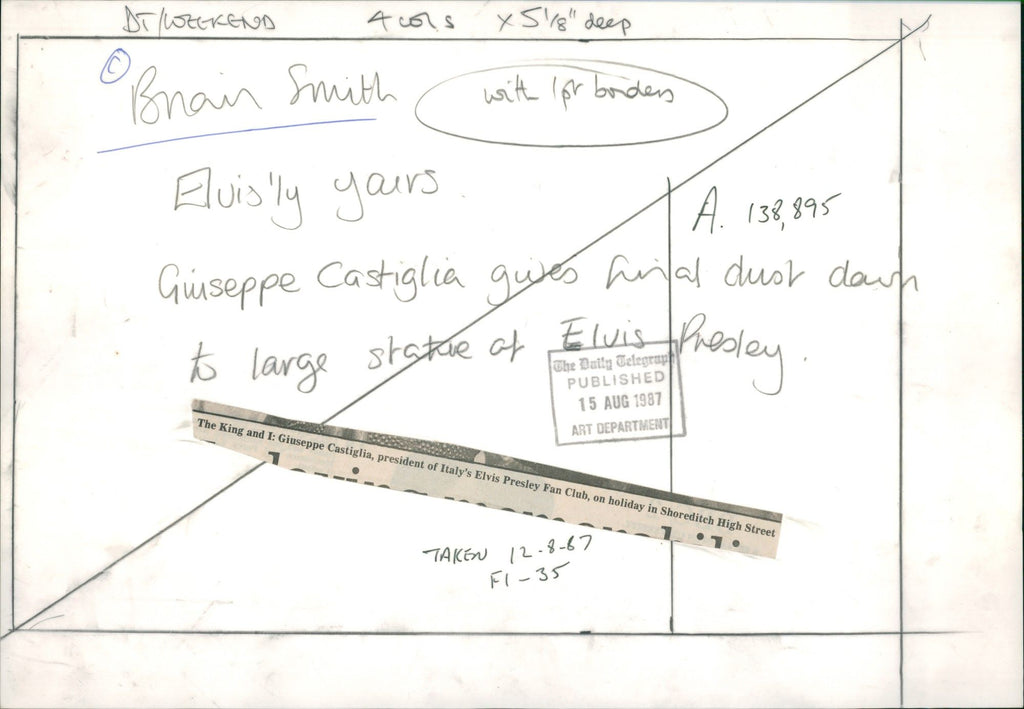 DT/WEEKEND 4 cols x 5 1/8" deep
© Brian Smith
with 1pt borders
Elvis'ly yours
A. 138,895
Giuseppe Castiglia gives final dust down
to large statue of Elvis Presley.
The Daily Telegraph
PUBLISHED
15 AUG 1987
ART DEPARTMENT
The King and I: Giuseppe Castiglia, president of Italy's Elvis Presley Fan Club, on holiday in Shoreditch High Street
TAKEN 12-8-87
F1-35